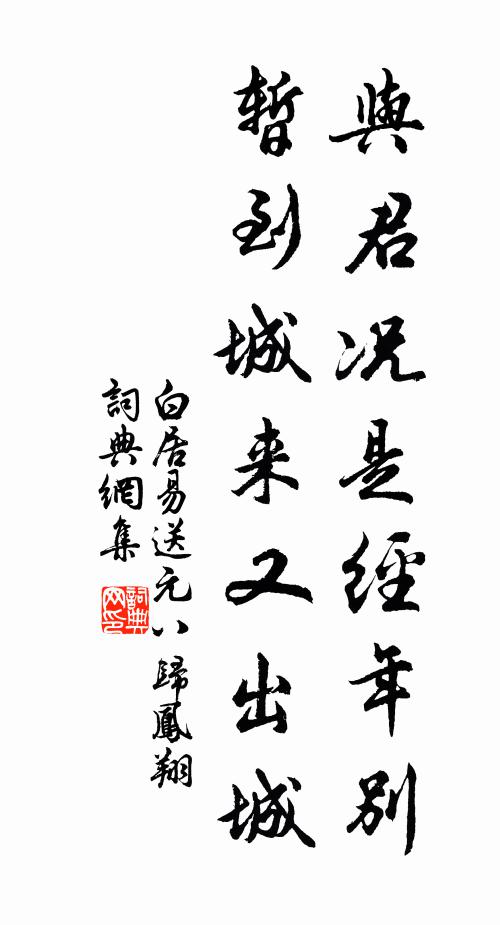 與君况是經年別
暫到城来又出城
白居易送元八歸鳳翔
詞典網集
詞典网印